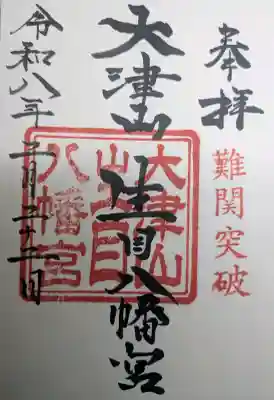 奉拝
難関突破
大津山生目八幡宮
大津山生目八幡宮
令和八年三月二十一日